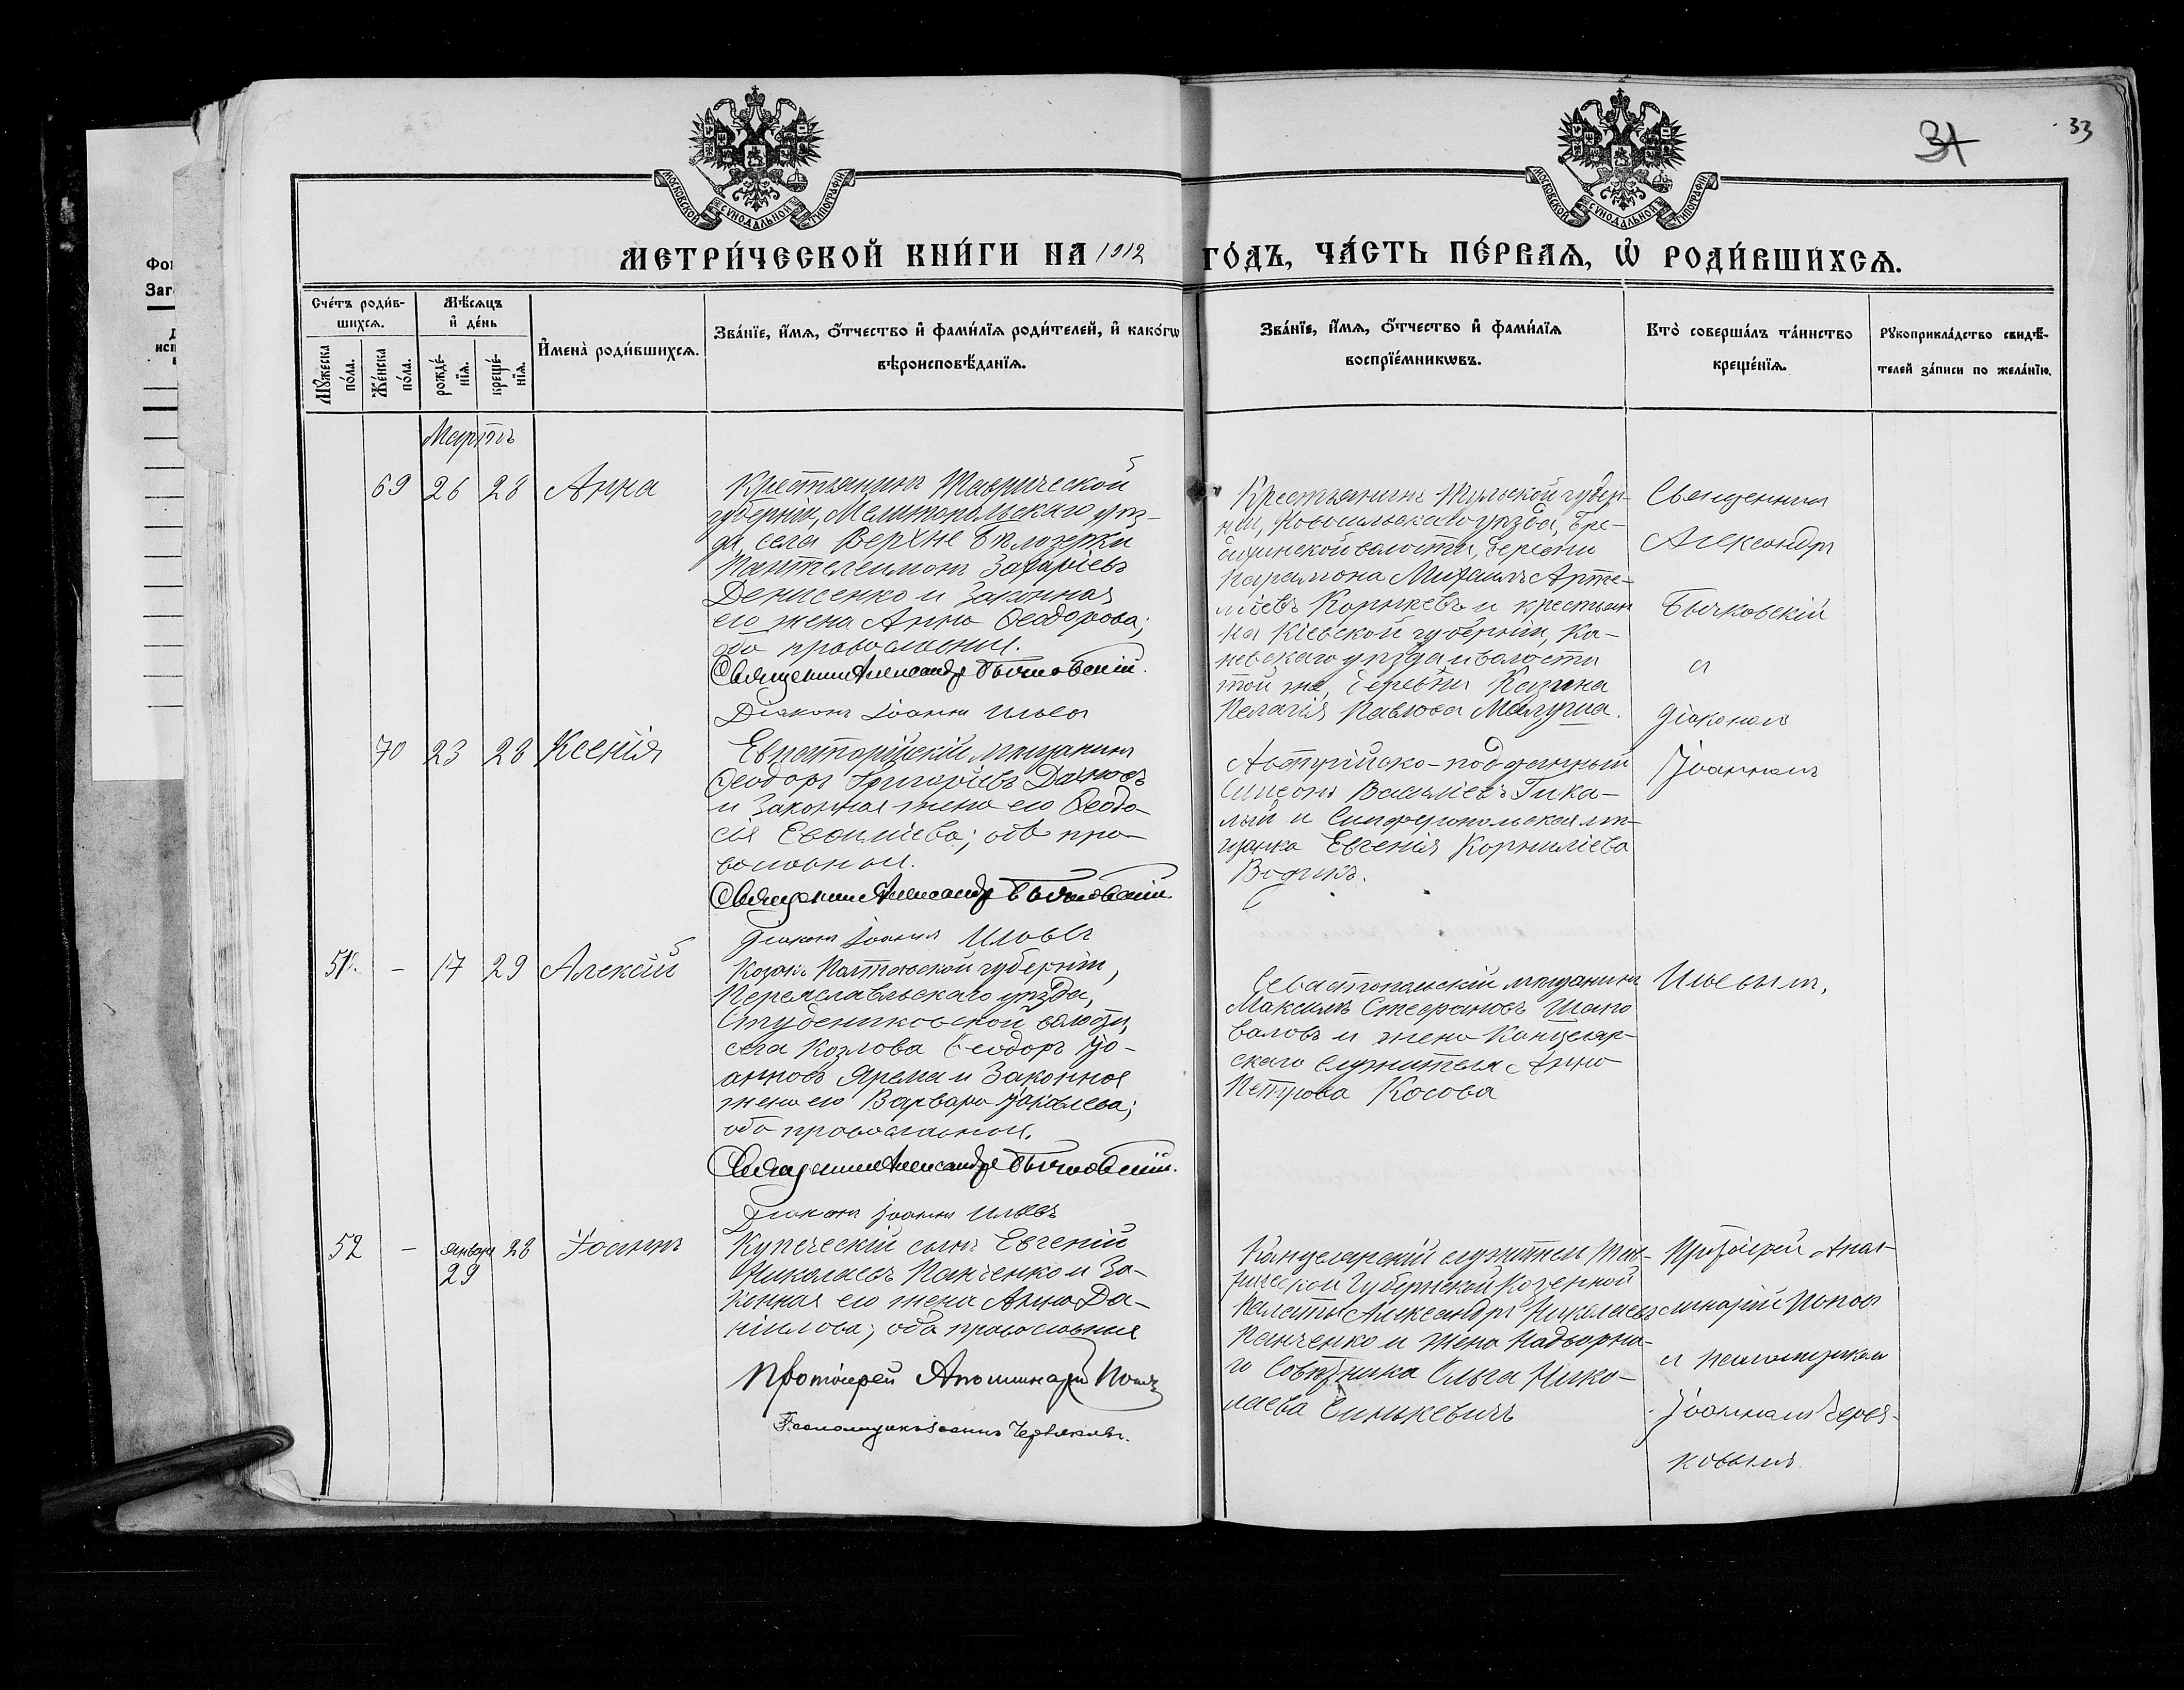 33
31
МОСКОВСКОЙ СѴНОДАЛЬНОЙ ТИПОГРАФІИ
МОСКОВСКОЙ СѴНОДАЛЬНОЙ ТИПОГРАФІИ
МЕТРИ́ЧЕСКОЙ КНИ́ГИ НА 1912 ГО́ДЪ, ЧА́СТЬ ПЕ́РВАѦ, Ѡ҆ РОДИ́ВШИХСѦ.
Сче́тъ роди́в-
шихсѧ.
Мѣ́сѧцъ
и҆ де́нь
Мꙋ́жеска
по́ла.
Же́нска
по́ла.
рожде́-
нїѧ.
креще́-
нїѧ.
И҆мена̀ роди́вшихсѧ.
Зва́нїе, и҆́мѧ, ѻ҆́тчество и҆ фами́лїѧ роди́телей, и҆ како́гѡ
вѣроисповѣ́данїѧ.
Зва́нїе, и҆́мѧ, ѻ҆́тчество и҆ фами́лїѧ
воспрїе́мникѡвъ.
Кто̀ соверша́лъ та́инство
креще́нїѧ.
Рꙋкоприкла́дство свидѣ́-
телей за́писи по жела́нїю.
Мартъ
69 26 28 Анна
Крестьянинъ Таврической
губерніи, Мелитопольскаго уѣз-
да, села Верхне Бѣлозерки
Пантелеимонъ Захаріевъ
Денисенко и законная
его жена Анна Ѳеодорова;
оба православные.
Священникъ Александръ Бычковскій.
Діаконъ Іоаннъ Ильевъ
Крестьянинъ Тульской губер-
ніи, Новосильскаго уѣзда,
волости, деревни
Парамона Михаилъ Арте-
міевъ Корнѣевъ и крестьян
ка Кіевской губерніи, Ка-
невскаго уѣзда и волости
той же, деревни
Пелагія Павлова
Священникъ
Александръ
Бычковскій
и
діакономъ
Іоанномъ
Ильевымъ.
70 23 28 Ксенія
Евпаторійскій мѣщанинъ
Ѳеодоръ Григоріевъ
и законная жена его Ѳеодо-
сія; оба пра-
вославные.
Священникъ Александръ Бычковскій.
Діаконъ Іоаннъ Ильевъ
Австрійско-подданный
Симеонъ Василіевъ Гика-
лый и Симферопольская мѣ-
щанка Евгенія Корниліева
51. - 17 29 Алексій
Козакъ Полтавской губерніи,
Переяславльскаго уѣзда,
Студениковской волости,
села Козлова Ѳеодоръ Іо-
анновъ Ярема и законная
жена его Варвара Іаковлева;
оба православные.
Священникъ Александръ Бычковскій.
Діаконъ Іоаннъ Ильевъ
Севастопольскій мѣщанинъ
Максимъ Стефановъ Шапо
валовъ и жена Канцеляр-
скаго служителя Анна
Петрова Косова
52 - января 28 Іоаннъ
29
Купеческій сынъ Евгеній
Николаевъ Панченко и за-
конная его жена Анна Да-
ніилова; оба православные
Протоіерей Аполлинарій Поповъ
Псаломщикъ Іоаннъ Червяковъ.
Канцелярскій служитель Тав-
рической Губернской Казенной
Палаты Александръ Николаевъ
Панченко и жена Надворна-
го Совѣтника Ольга Нико-
лаева Синькевичъ
Протоіерей Апол-
линарій Поповъ
и псаломщикомъ
Іоанномъ Червя-
ковымъ